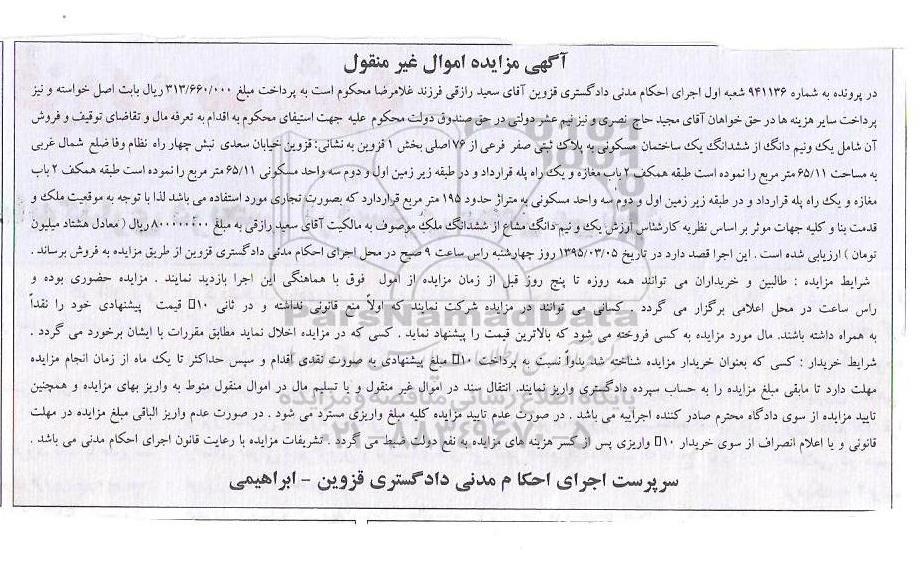 آگهی مزایده اموال غیر منقول
در پرونده به شماره ۹۴۱۱۳۶ شعبه اول اجرای احکام مدنی دادگستری قزوین آقای سعید رازقی فرزند غلامرضا محکوم است به پرداخت مبلغ ۳۱۳/۶۶۰/۰۰۰ ریال بابت اصل خواسته و نیز
پرداخت سایر هزینه ها در حق خواهان آقای مجید حاج نصری و نیز نیم عشر دولتی در حق صندوق دولت محکوم علیه جهت استیفای محکوم به اقدام به تعرفه مال و تقاضای توقیف و فروش
آن شامل یک ونیم دانگ از ششدانگ یک ساختمان مسکونی به پلاک ثبتی صفر فرعی از ۷۶ اصلی بخش ۱ قزوین به نشانی: قزوین خیابان سعدی نبش چهار راه نظام وفا ضلع شمال غربی
به مساحت ۶۵/۱۱ متر مربع را نموده است طبقه همکف ۲ باب مغازه و یک راه پله قرارداد و در طبقه زیر زمین اول و دوم سه واحد مسکونی ۶۵/۱۱ متر مربع را نموده است طبقه همکف ۲ باب
مغازه و یک راه پله قرارداد و در طبقه زیر زمین اول و دوم سه واحد مسکونی به متراژ حدود ۱۹۵ متر مربع قراردارد که بصورت تجاری مورد استفاده می باشد لذا با توجه به موقعیت ملک و
قدمت بنا و کلیه جهات موثر بر اساس نظریه کارشناس ارزش یک و نیم دانگ مشاع از ششدانگ ملک موصوف به مالکیت آقای سعید رازقی به مبلغ ۸۰۰۰۰۰۰۰۰ ریال ( معادل هشتاد میلیون
تومان ) ارزیابی شده است . این اجرا قصد دارد در تاریخ ۱۳۹۵/۰۳/۰۵ روز چهارشنبه راس ساعت ۹ صبح در محل اجرای احکام مدنی دادگستری قزوین از طریق مزایده به فروش برساند .
شرایط مزایده : طالبین و خریداران می توانند همه روزه تا پنج روز قبل از زمان مزایده از امول فوق با هماهنگی این اجرا بازدید نمایند . مزایده حضوری بوده و
راس ساعت در محل اعلامی برگزار می گردد . کسانی می توانند در مزایده شرکت نمایند که اولاً منع قانونی نداشته و در ثانی ۱۰ قیمت پیشنهادی خود را نقداً
به همراه داشته باشند. مال مورد مزایده به کسی فروخته می شود که بالاترین قیمت را پیشنهاد نماید . کسی که در مزایده اخلال نماید مطابق مقررات با ایشان برخورد می گردد .
شرایط خریدار : کسی که بعنوان خریدار مزایده شناخته شد بدواً نسبت به پرداخت ۱۰ مبلغ پیشنهادی به صورت نقدی اقدام و سپس حداکثر تا یک ماه از زمان انجام مزایده
مهلت دارد تا مابقی مبلغ مزایده را به حساب سپرده دادگستری واریز نمایند. انتقال سند در اموال غیر منقول و یا تسلیم مال در اموال منقول منوط به واریز بهای مزایده و همچنین
تایید مزایده از سوی دادگاه محترم صادر کننده اجراییه می باشد . در صورت عدم تایید مزایده کلیه مبلغ واریزی مسترد می شود . در صورت عدم واریز الباقی مبلغ مزایده در مهلت
قانونی و یا اعلام انصراف از سوی خریدار ۱۰ واریزی پس از کسر هزینه های مزایده به نفع دولت ضبط می گردد . تشریفات مزایده با رعایت قانون اجرای احکام مدنی می باشد .
سرپرست اجرای احکام مدنی دادگستری قزوین – ابراهیمی
ParsNamadData
پایگاه اطلاع رسانی مناقصه و مزایده
۰۲۱-۸۸۳۴۹۶۷۰-۵